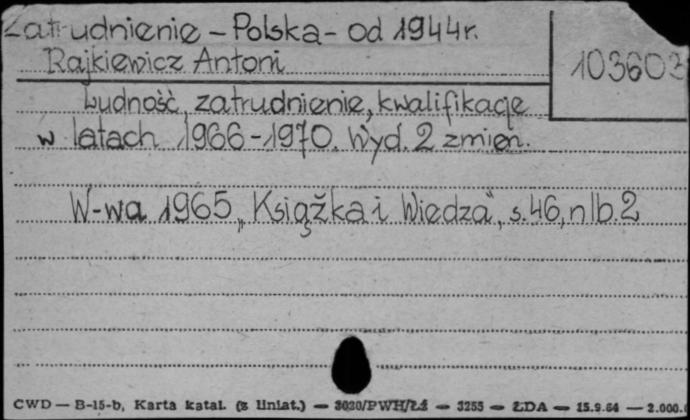 Zatrudnienie - Polska - od 1944r.
103603
Rajkiewicz Antoni
Ludność, zatrudnienie, kwalifikacje
w latach 1966-1970. Wyd. 2 zmien.
W-wa 1965 „Książka i Wiedza", s. 46, nlb. 2
CWD — B-15-b, Karta katal. (z liniat.) — 3020/PWH/Łś — 3255 — ŁDA — 15.9.64 — 2.000.